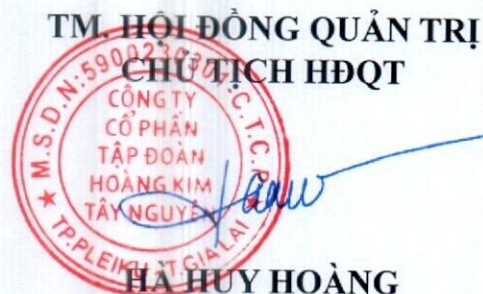 TM. HỘI ĐỒNG QUẢN TRỊ
CHỦ TỊCH HĐQT
M.S.D.N: C.T.C.P
CÔNG TY
CỔ PHẦN
TẬP ĐOÀN
HOÀNG KIM
TÂY NGUYÊN
TP.PLEIKU T.GIA LAI
HÀ HUY HOÀNG